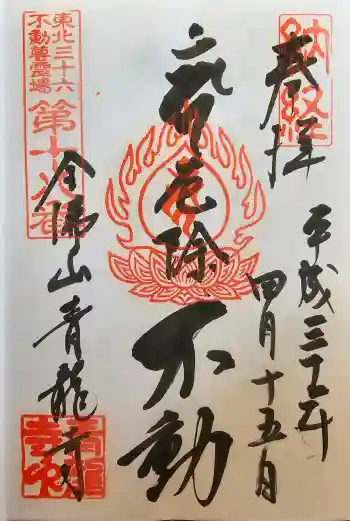 納経
奉拝
平成三十一年
四月十五日
厄除
不動
東北三十六
不動尊霊場
第十八番
全佛山青龍寺
青龍
寺印